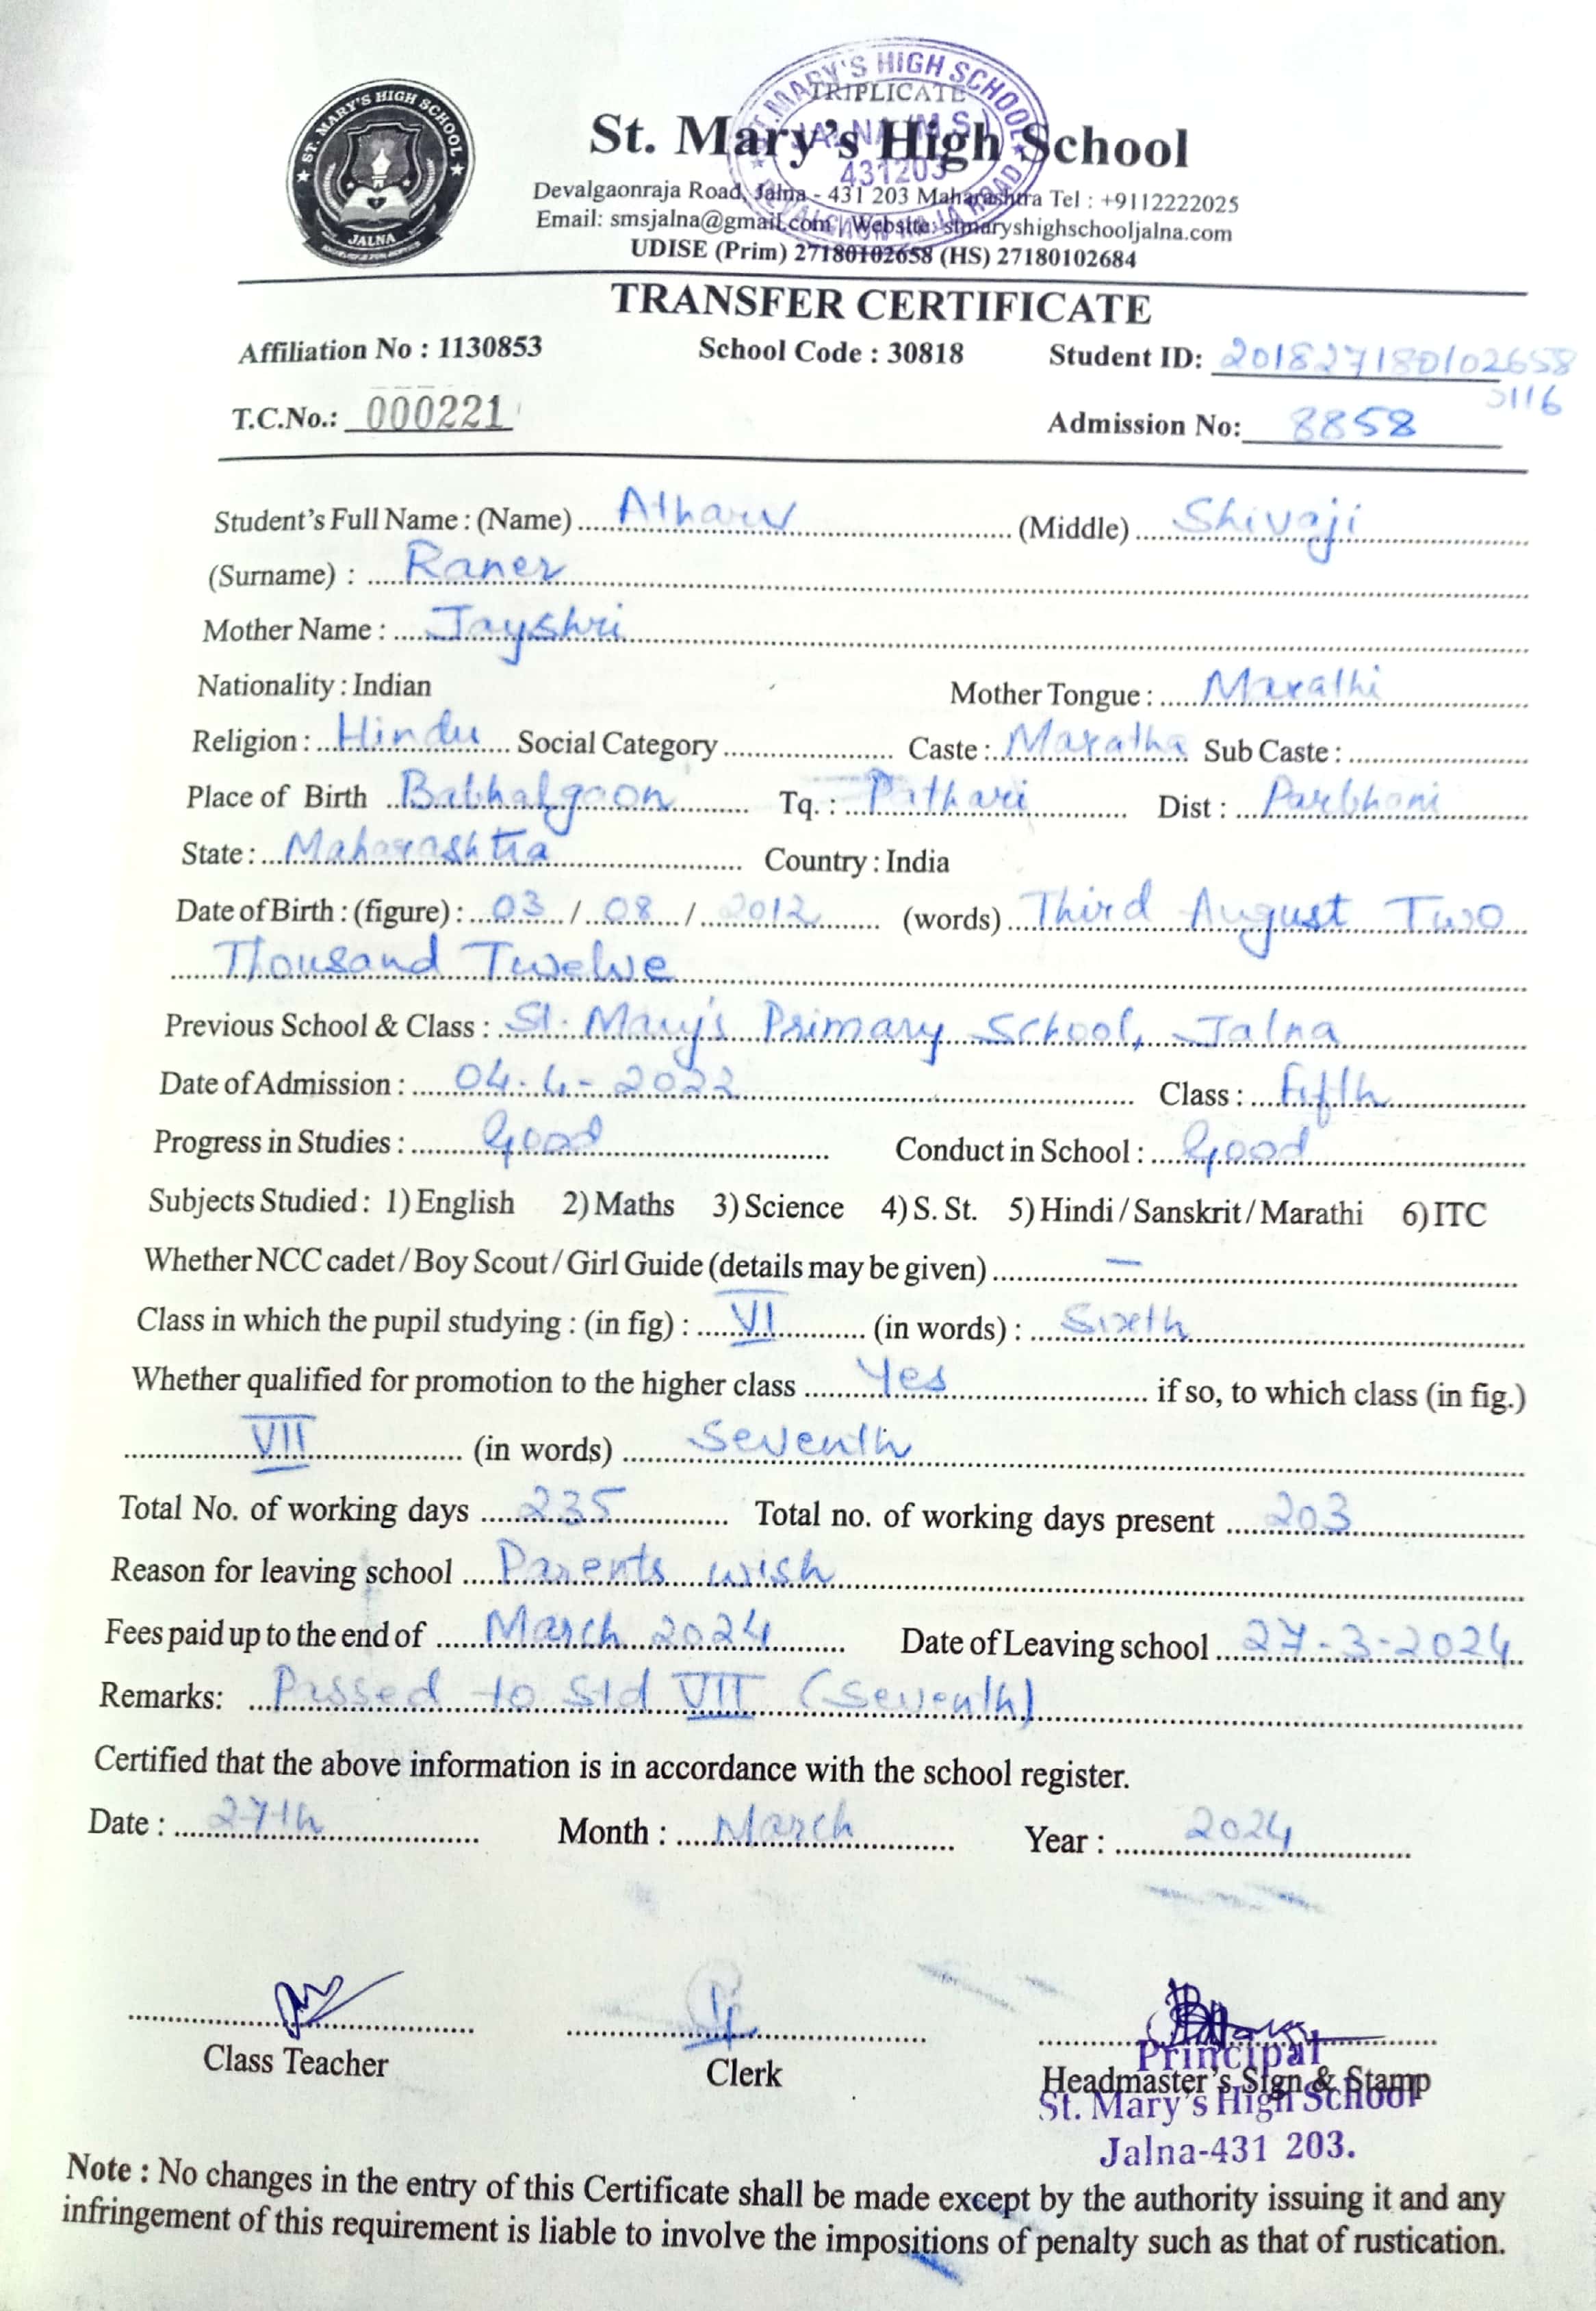 ST. MARY'S HIGH SCHOOL
JALNA
ST. MARY'S HIGH SCHOOL
JALNA (M.S.)
431203
DEVALGAON RAJA ROAD
TRIPLICATE
St. Mary's High School
Devalgaonraja Road, Jalna - 431 203 Maharashtra Tel : +9112222025
Email: smsjalna@gmail.com | Website: stmaryshighschooljalna.com
UDISE (Prim) 27180102658 (HS) 27180102684
TRANSFER CERTIFICATE
Affiliation No : 1130853 School Code : 30818 Student ID: 201827180102658
0116
T.C.No.: 000221 Admission No: 8858
Student's Full Name : (Name) Atharv (Middle) Shivaji
(Surname) : Raner
Mother Name : Jayshri
Nationality : Indian Mother Tongue : Marathi
Religion : Hindu Social Category Caste : Maratha Sub Caste :
Place of Birth Babhalgaon Tq. : Pathari Dist : Parbhani
State : Maharashtra Country : India
Date of Birth : (figure) : 03 / 08 / 2012 (words) Third August Two
Thousand Twelve
Previous School & Class : St. Mary's Primary School, Jalna
Date of Admission : 04-4-2022 Class : Fifth
Progress in Studies : Good Conduct in School : Good
Subjects Studied : 1) English 2) Maths 3) Science 4) S. St. 5) Hindi / Sanskrit / Marathi 6) ITC
Whether NCC cadet / Boy Scout / Girl Guide (details may be given) —
Class in which the pupil studying : (in fig) : VI (in words) : Sixth
Whether qualified for promotion to the higher class Yes if so, to which class (in fig.)
VII (in words) Seventh
Total No. of working days 235 Total no. of working days present 203
Reason for leaving school Parents wish
Fees paid up to the end of March 2024 Date of Leaving school 27-3-2024
Remarks: Passed to Std VII (Seventh)
Certified that the above information is in accordance with the school register.
Date : 27th Month : March Year : 2024
Class Teacher Clerk Headmaster's Sign & Stamp
Principal
St. Mary's High School
Jalna-431 203.
Note : No changes in the entry of this Certificate shall be made except by the authority issuing it and any
infringement of this requirement is liable to involve the impositions of penalty such as that of rustication.